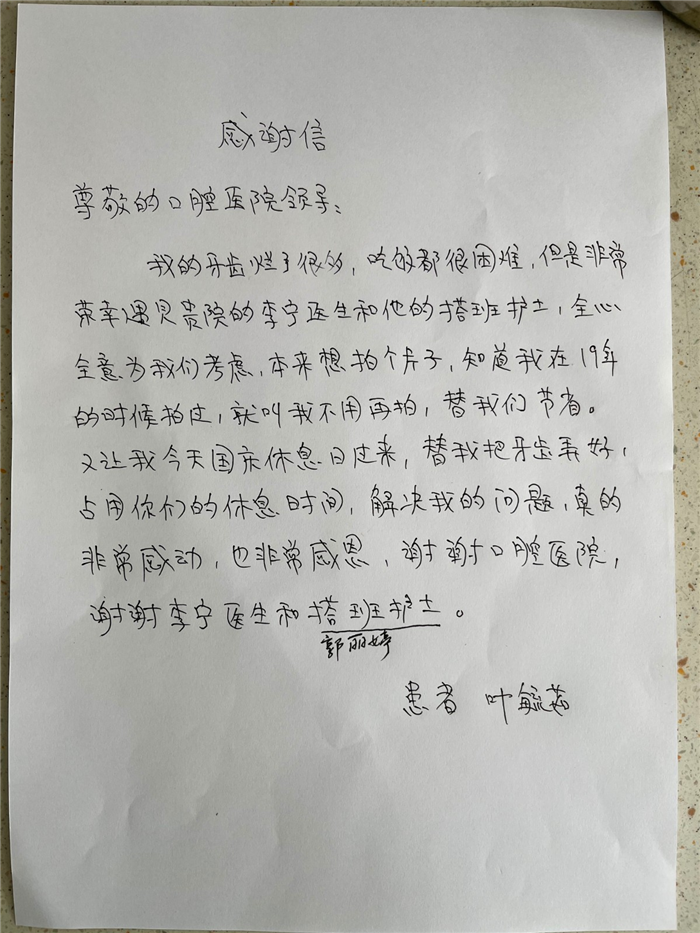 感谢信
尊敬的口腔医院领导：
我的牙齿烂了很多，吃饭都很困难，但是非常
荣幸遇见贵院的李宁医生和他的搭班护士，全心
全意为我们考虑，本来想拍个片子，知道我在19年
的时候拍过，就叫我不用再拍，替我们节省。
又让我今天国庆休息日过来，替我把牙齿弄好，
占用你们的休息时间，解决我的问题，真的
非常感动，也非常感恩，谢谢口腔医院，
谢谢李宁医生和搭班护士。
郭丽婷
患者 叶毓茹